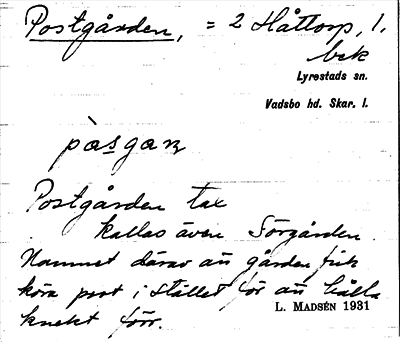 Postgården, = 2 Håttorp, 1.
bek
Lyrestads sn.
Vadsbo hd. Skar. l.
Postgården tax
kallas även Sörgården.
Namnet därav att gården fick
köra post i stället för att hålla
L. MADSÉN 1931
knekt förr.